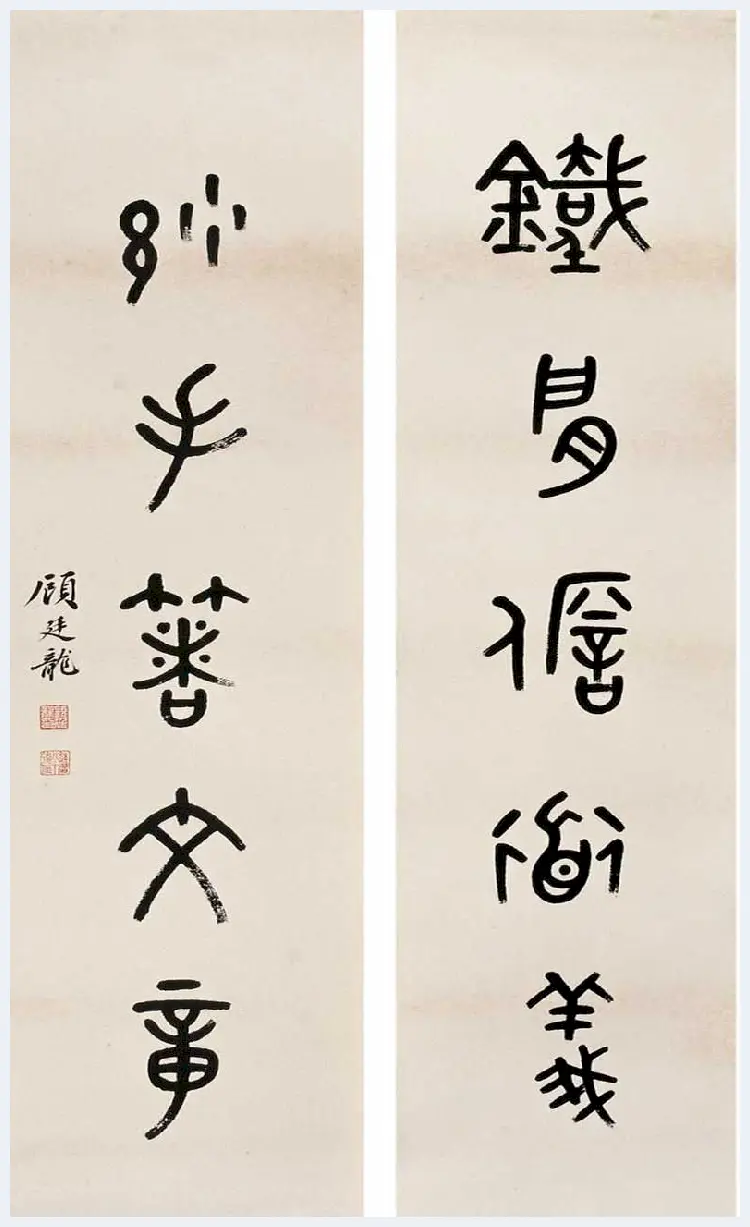 鐵肩擔道義
妙手著文章
顧廷龍